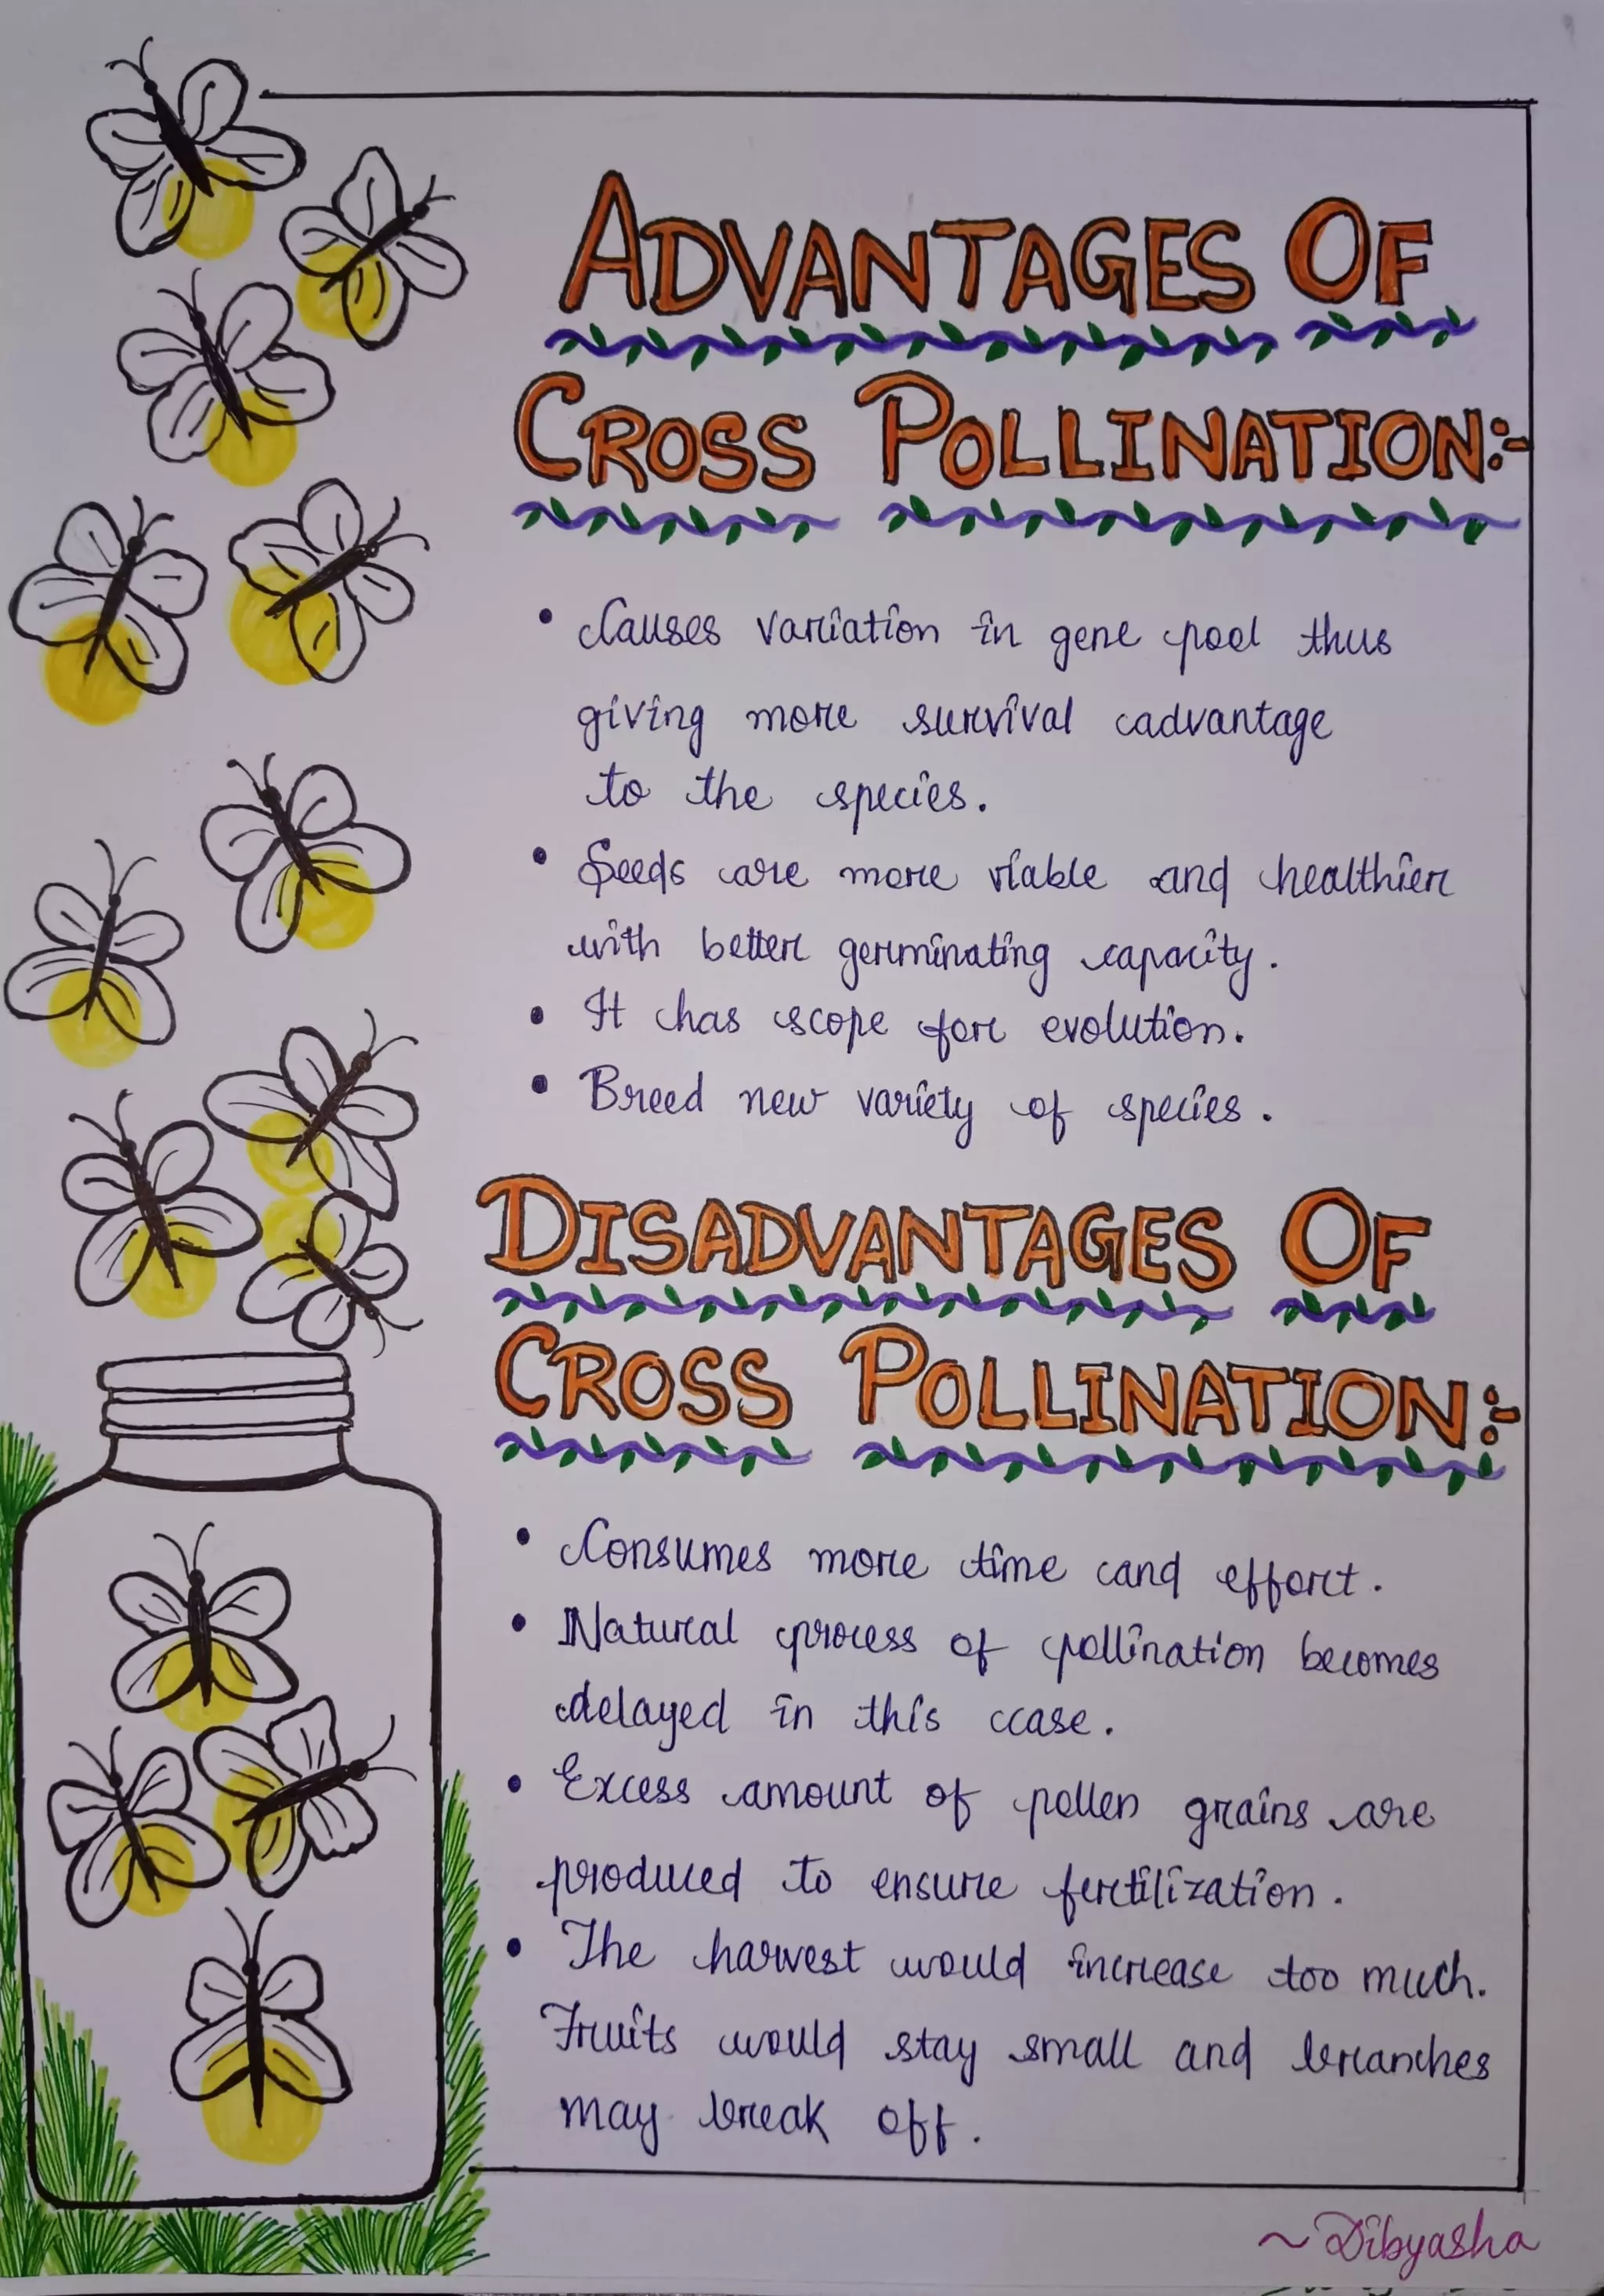 ADVANTAGES OF
CROSS POLLINATION:-
• Causes variation in gene pool thus
giving more survival advantage
to the species.
• Seeds are more viable and healthier
with better germinating capacity.
• It has scope for evolution.
• Breed new variety of species.
DISADVANTAGES OF
CROSS POLLINATION:-
• Consumes more time and effort.
• Natural process of pollination becomes
delayed in this case.
• Excess amount of pollen grains are
produced to ensure fertilization.
• The harvest would increase too much.
Fruits would stay small and branches
may break off.
~Dibyasha